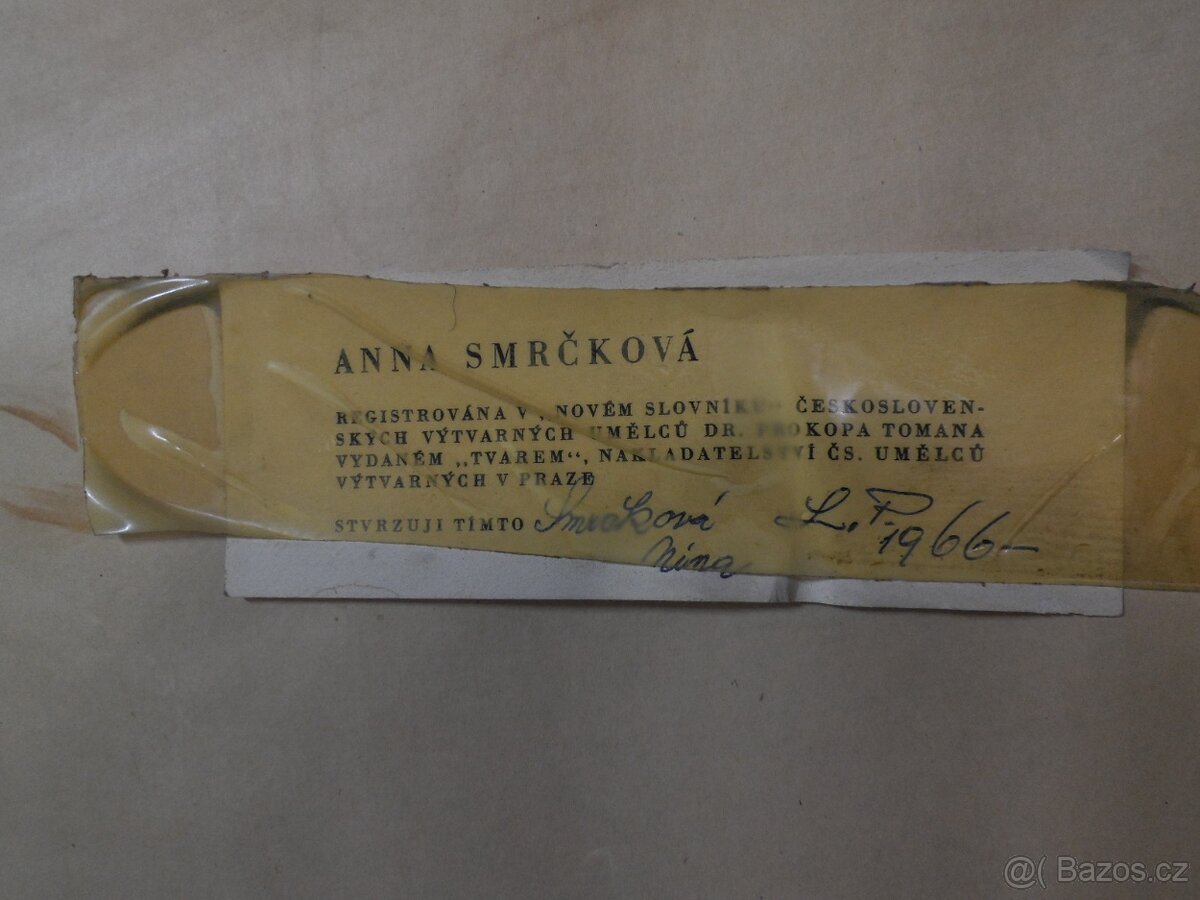 ANNA SMRČKOVÁ
REGISTROVÁNA V „ NOVÉM SLOVNÍKU ČESKOSLOVEN-
SKÝCH VÝTVARNÝCH UMĚLCŮ DR. PROKOPA TOMANA
VYDANÉM „TVAREM“, NAKLADATELSTVÍ ČS. UMĚLCŮ
VÝTVARNÝCH V PRAZE
STVRZUJI TÍMTO Smrčková L.P. 1966-
Nina
@( Bazos.cz